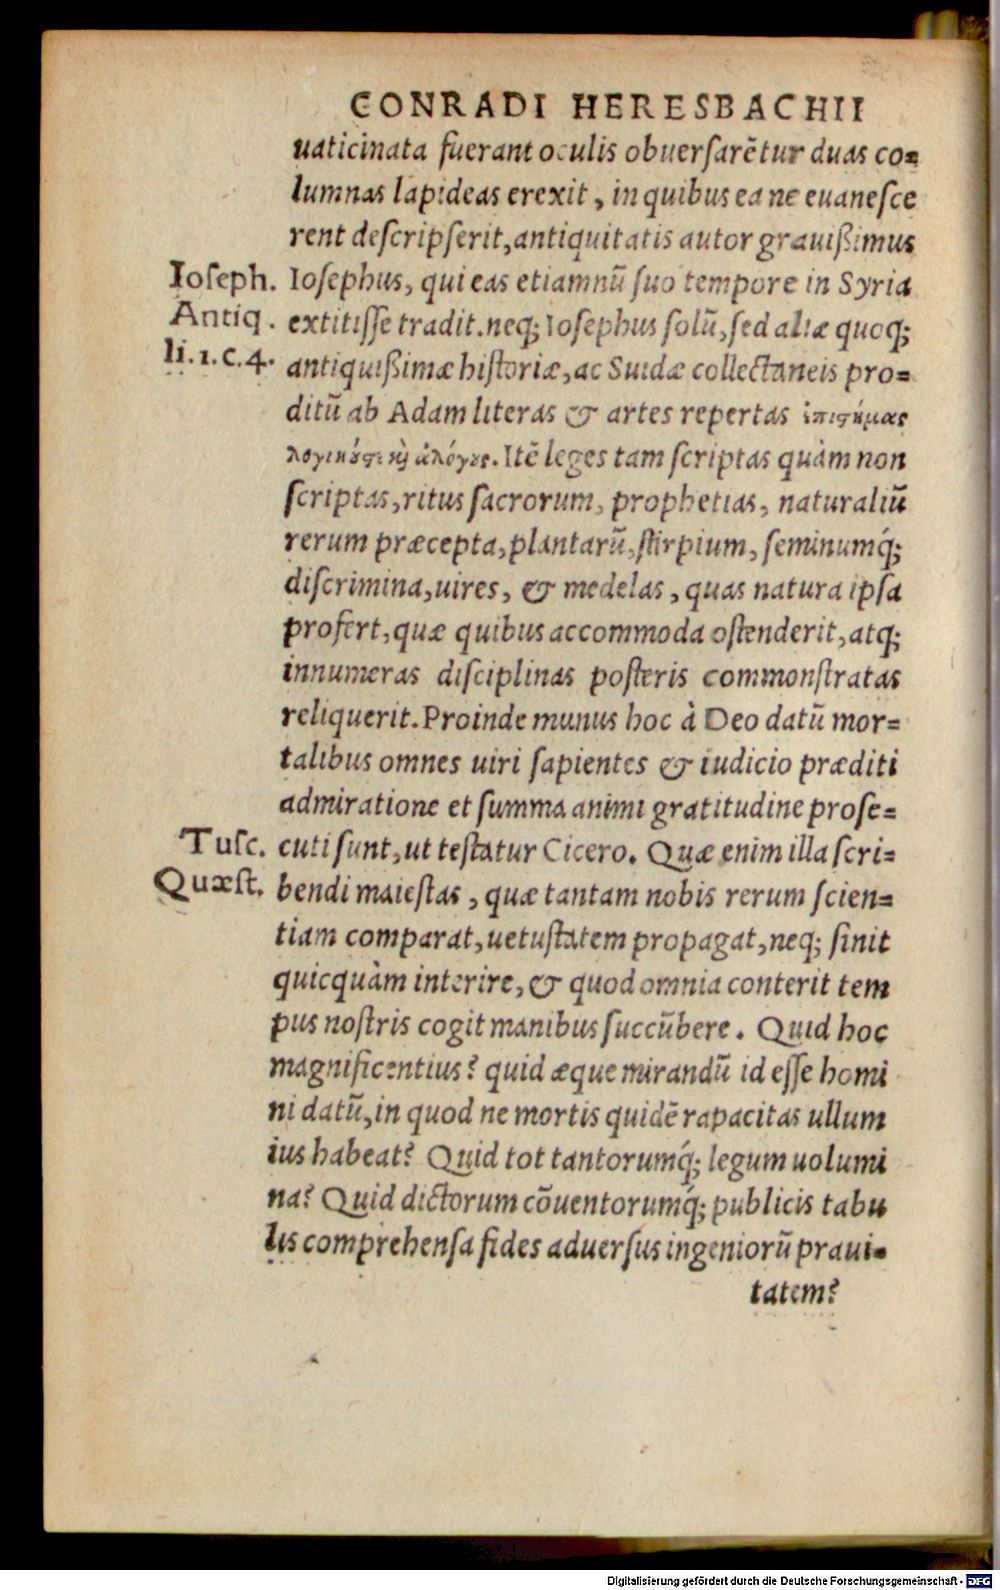 CONRADI HERESBACHII
uaticinata fuerant oculis obuersarētur duas co=
lumnas lapideas erexit, in quibus ea ne euanesce
rent descripserit, antiquitatis autor grauißimus
Ioseph.
Antiq.
li.1.c.4.
Iosephus, qui eas etiamnū suo tempore in Syria
extitisse tradit. neq; Iosephus solū, sed aliæ quoq;
antiquißimæ historiæ, ac Suidæ collectaneis pro=
ditū ab Adam literas & artes repertas
Itē leges tam scriptas quàm non
scriptas, ritus sacrorum, prophetias, naturaliū
rerum præcepta, plantarū, stirpium, seminumq́;
discrimina, uires, & medelas, quas natura ipsa
profert, quæ quibus accommoda ostenderit, atq;
innumeras disciplinas posteris commonstratas
reliquerit. Proinde munus hoc à Deo datū mor=
talibus omnes uiri sapientes & iudicio præditi
admiratione et summa animi gratitudine prose=
Tusc.
Quæst.
cuti sunt, ut testatur Cicero. Quæ enim illa scri=
bendi maiestas, quæ tantam nobis rerum scien=
tiam comparat, uetustatem propagat, neq; sinit
quicquàm interire, & quod omnia conterit tem
pus nostris cogit manibus succūbere. Quid hoc
magnificentius? quid æque mirandū id esse homi
ni datū, in quod ne mortis quidē rapacitas ullum
ius habeat? Quid tot tantorumq́; legum uolumi
na? Quid dictorum cōuentorumq́; publicis tabu
lis comprehensa fides aduersus ingeniorū praui=
tatem?
Digitalisierung gefördert durch die Deutsche Forschungsgemeinschaft - DFG